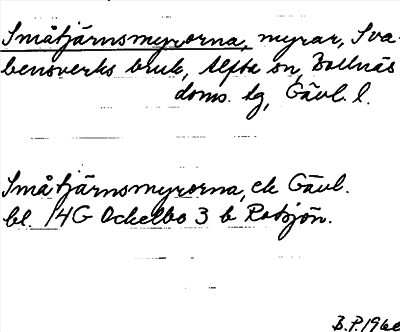 Småtjärnsmyrorna, myrar, Sva-
bensverks bruk, Alfta sn, Bollnäs
doms. tg, Gävl. l.
Småtjärnsmyrorna, ek Gävl.
bl. 14G Ockelbo 3 b Robjön.
B.P. 1960